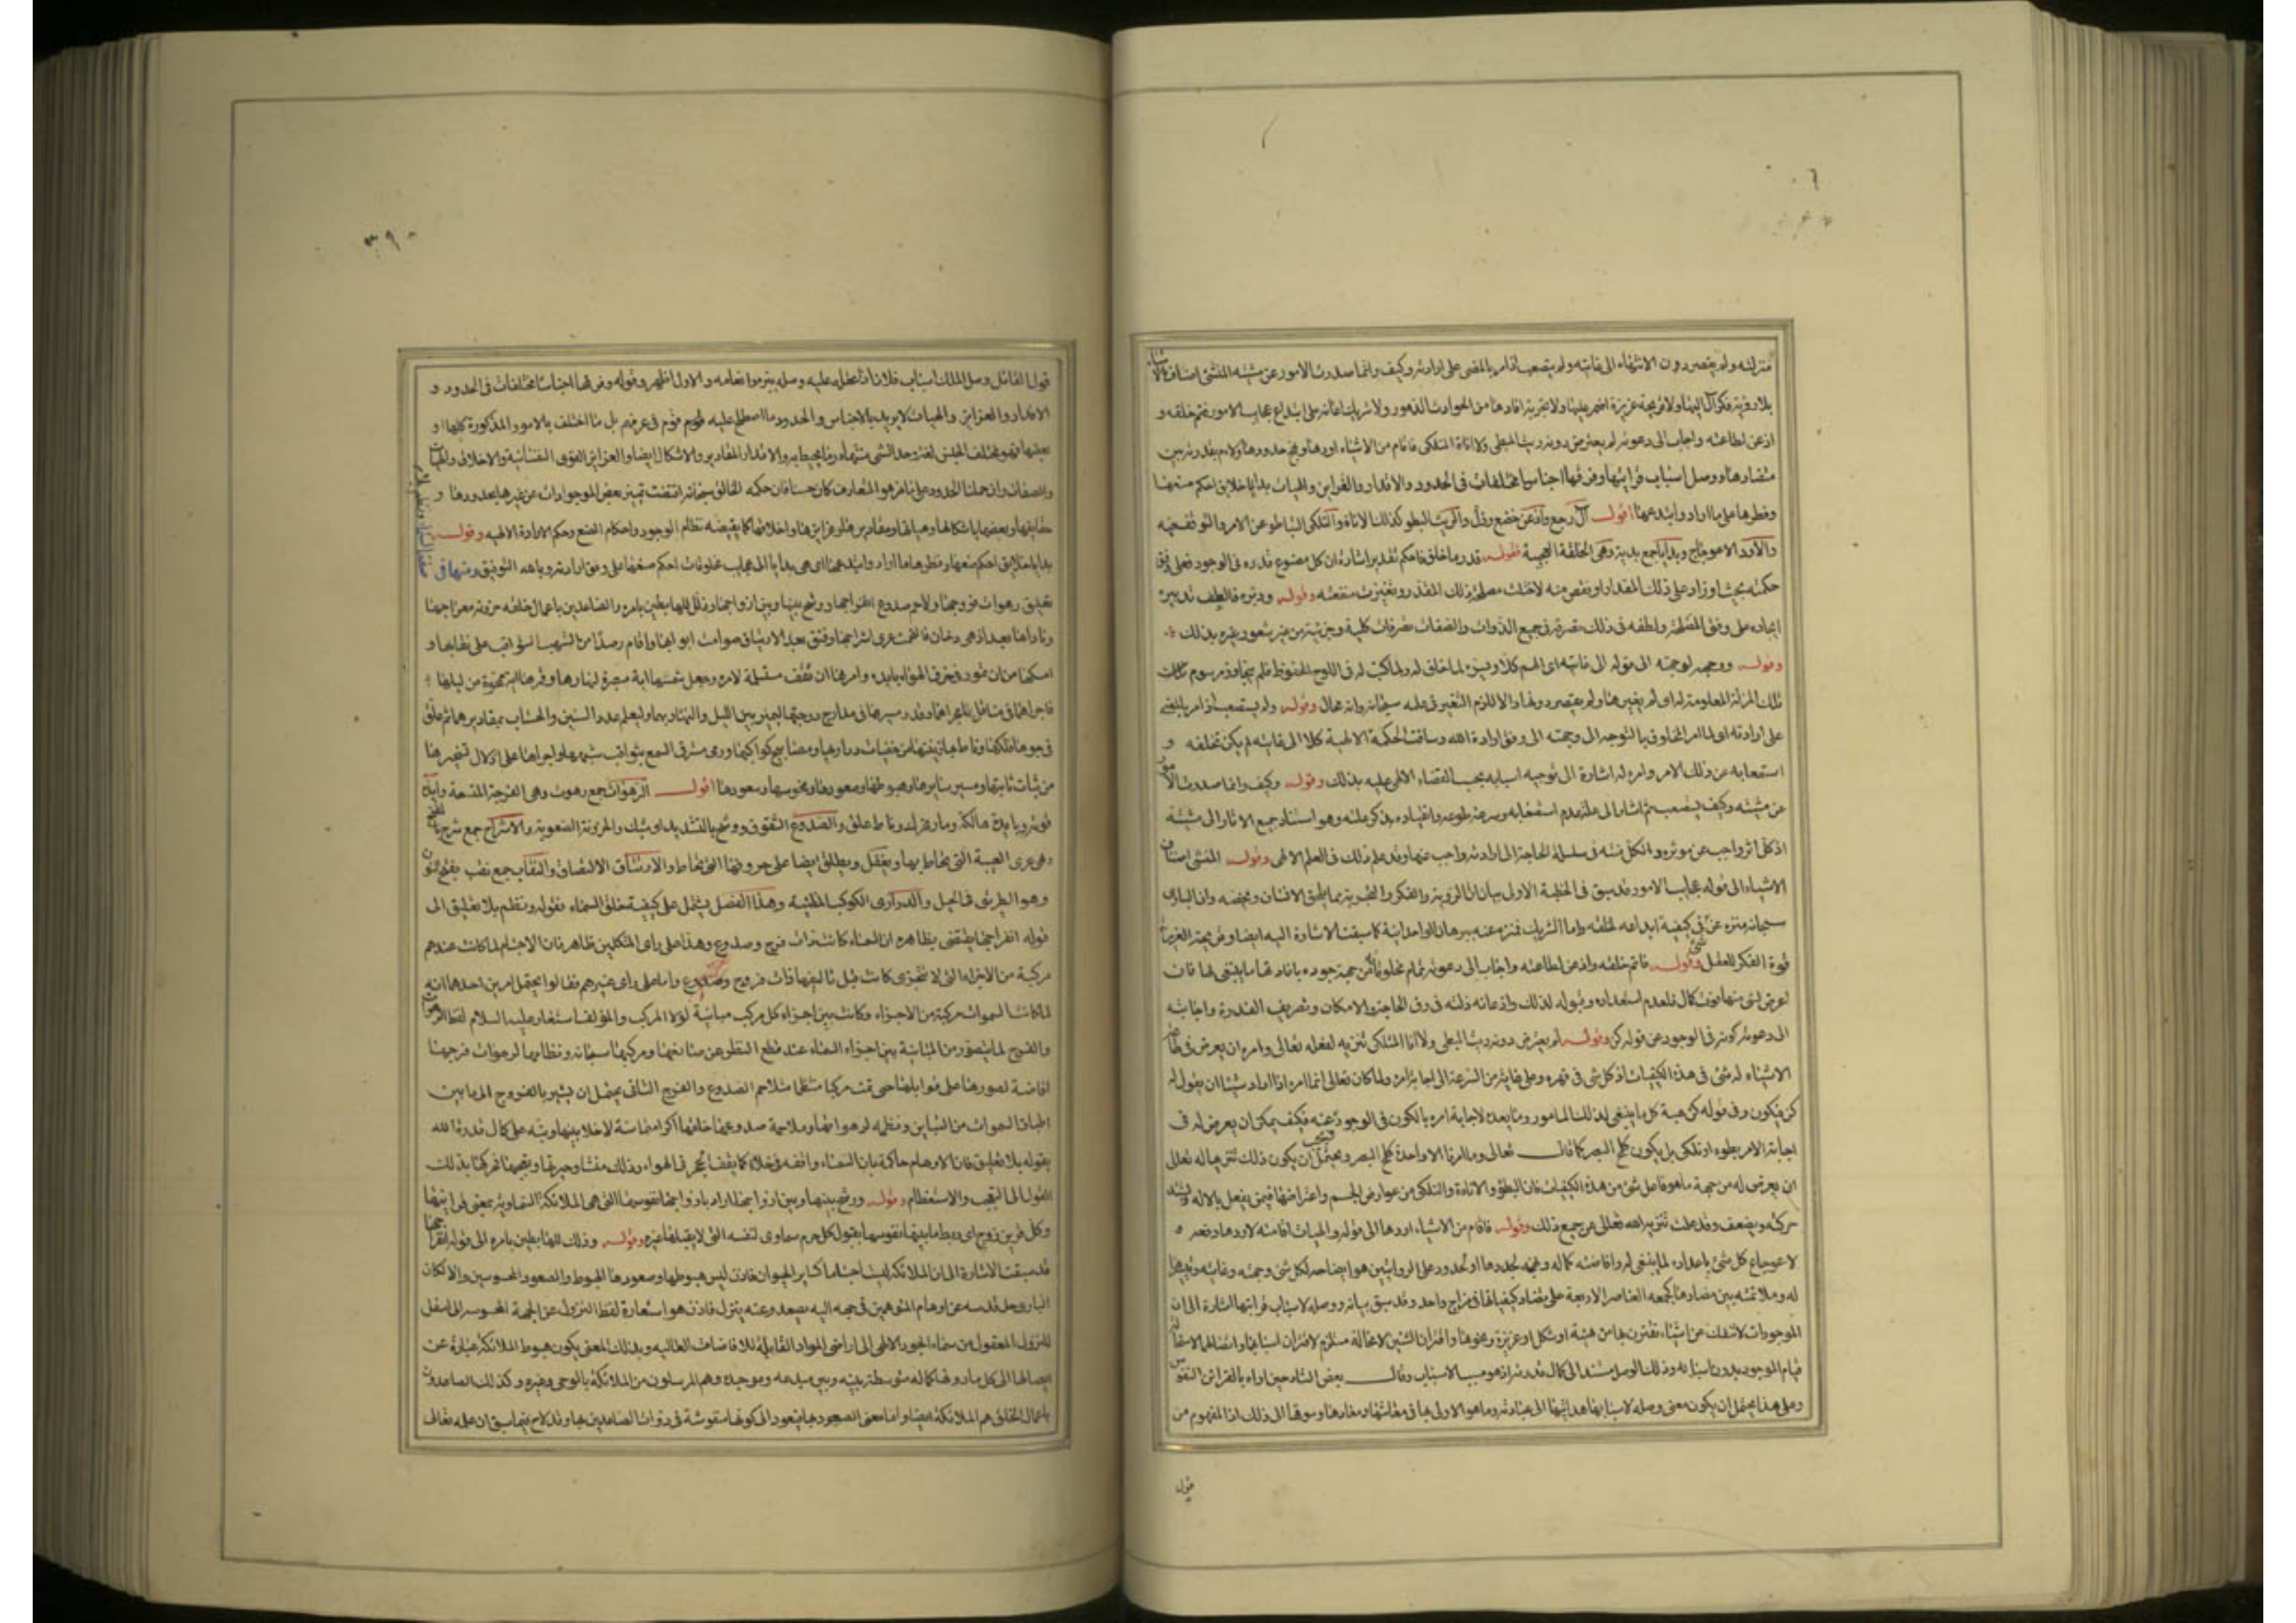 منزلته ولم يقصر دون الانتهاء الى غايته ولم يستصعب اذ امر بالمضى على ارادته وكيف وانما صدرت الامور عن مشيته المنشئ اصناف الاشياء
بلا روية فكر آل اليها ولا قريحة غريزة اضمر عليها ولا تجربة افادها من الحوادث الدهور ولا شريك اعانه على ابتداع عجايب الامور فتم خلقه و
اذعن لطاعته واجاب الى دعوته لم يعترض دونه ريث المبطى ولا اناة المتلكى فاقام من الاشياء اودها ونهج حدودها ولاءم بقدرته بين
متضادها ووصل اسباب قراينها وفرقها اجناسا مختلفات فى الحدود والاقدار والغرايز والهيات بدايا خلايق احكم صنعها
وفطرها على ما اراد وابتدعها اقول آل رجع واذعن خضع وذل والريث البطو وكذلك الاناة والتلكى التباطو عن الامر والتوقف فيه
والاود الاعوجاج وبدايا جمع بدية وهى الخلقة العجيبة فقوله قدر ما خلق فاحكم تقديره اشارة ان كل مصنوع قدره فى الوجود فعلى وفق
حكمته بحيث لو زاد على ذلك المقدار او نقص منه لاختلت مصلحة ذلك المقدر وتغيرت منفعته وقوله ودبره فالطف تدبيره
ايجاده على وفق المصلحة ولطفه فى ذلك تصرفه فى جميع الذوات والصفات تصرفات كلية وجزئية من غير شعور غيره بذلك
وقوله ووجهه لوجهته الى قوله الى غايته اى الهم كلا ويسره لما خلق له ولما كتب له فى اللوح المحفوظ فلم يتجاوز مرسوم تلك
تلك المنزلة المعلومة له او لم يغيرها ولم يقصر دونها والا للزم التغير فى علمه سبحانه وانه محال وقوله ولم يستصعب اذ امر بالمضى
على ارادته اى لما امر المخلوق بالتوجه الى وجهته الى وفق ارادة الله وساقت الحكمة الالهية كلا الى غايته لم يكن تخلفه و
استصعابه عن ذلك الامر وامره له اشارة الى توجيه اسبابه بحسب القضاء الالهى عليه بذلك وقوله وكيف وانما صدرت الامور
عن مشيته وكيف يستصعب ثم اشار الى علة عدم استصعابه وسرعة طوعه وانقياده بذكر علته وهو استناد جميع الاثار الى مشيته
اذ كل اثر واجب عن موثره والكل منته فى سلسلة الحاجة الى ارادته واجب عنها وقد علم ذلك فى العلم الالهى وقوله المنشئ اصناف
الاشياء الى قوله عجايب الامور قد سبق فى الخطبة الاولى بيان ان الروية والفكر والتجربة مما يلحق الانسان ويخصه وان البارى
سبحانه منزه عن فى كيفية ابداعه لخلقه واما الشريك فمنزه عنه ببرهان الواحدانية كما سبقت الاشارة اليه ايضا
قوة الفكر للعقل وقوله فاتم خلقه واذعن لطاعته واجاب الى دعوته تمام مخلوقاته من جهة جوده بافادتها ما ينبغى لها فان
لعرض لشى منها فوت كمال فلعدم استعداده وقبوله لذلك واذعانه ذلته فى رق الحاجة والامكان وتصريف القدرة واجابته
الى دعوته كونه فى الوجود عن قوله كن وقوله لم يعترض دونه ريث المبطى ولا اناة المتلكى تنزيه لفعله تعالى وامره ان يعرض فى
الاشياء له شى فى هذه الكيفيات اذ كل شى فى قهره وعلى غاية من السرعة الى اجابة امره ولما كان تعالى انما امره اذا اراد شيئا ان يقول له
كن فيكون وفى قوله كن هبة كل ما ينبغى لذلك المامور وما يعده لاجابة امره بالكون فى الوجود عنه فكيف يمكن ان يعرض له فى
اجابة الامر بطوء او تلكى بل يكون كلمح البصر كما قال تعالى وما امرنا الا واحدة كلمح البصر ويحتمل ان يكون ذلك تنزيها له تعالى
ان يعرض له من جهة ما هو فاعل شى من هذه الكيفيات فان البطؤ والاناءة والتلكى من عوارض الجسم واعتراضها فيمن يفعل بالالة وتشتد
حركته ويضعف وقد علمت تنزيه الله تعالى عن جميع ذلك وقوله فاقام من الاشياء اودها الى قوله والهيات اقامته لاودها رفعه
لاعوجاج كل شى باعداده لما ينبغى له وافاضته كماله ونهجه لجددها او لحدودها على الروايتين هو ايضاحه لكل شى وجهته وغايته
له وملائمته بين متضادها كجمعه العناصر الاربعة على تضاد كيفياتها فى مزاج واحد وقد سبق بيانه ووصله لاسباب قرائنها اشارة الى ان
الموجودات لا تنفك عن اشياء تقترن بها من هيئة او شكل او غريزة ونحوها واقتران الشيئين لا محالة مستلزم لاقتران اسبابهما واتصالهما لاستحالة
قيام الموجود بدون اسبابه وذلك الوصل مستند الى كمال قدرته اذ هو مسبب الاسباب وقال بعض الشارحين اراد بالقرائن النفوس
وعلى هذا يحتمل ان يكون معنى وصله لاسبابها هدايتها الى عبادته وما هو الاولى بها فى معاشها ومعادها وسوقها الى ذلك اذ المفهوم من
قول
٣٩٠
قول القائل وصل الملك اسباب فلان اذا علقه عليه ووصله ببره وانعامه والاول اظهر وقوله وفرقها اجناسا مختلفات فى الحدود و
الاقدار والغرايز والهيات لا يريد بالاجناس والحدود ما اصطلح عليه قوم فى عرفهم بل ما اختلف بالامور المذكورة كلها او
بعضها فهو مختلف الجنس لغة وحد الشى منتهاه وما يحيط به والاقدار المقادير والاشكال ايضا والغرايز القوى النفسانية والاخلاق والهيات
والصفات وان حملنا الحدود على ما هو المتعارف كان حسنا فان حكمة الخالق سبحانه اقتضت تميز بعض الموجودات عن غيرها بحدودها و
حقايقها وبعضها باشكالها وهياتها ومقاديرها وغرايزها واخلاقها كما يقتضيه نظام الوجود واحكام الصنع وحكم الارادة الالهية وقوله
بدايا خلايق احكم صنعها وفطرها على ما اراد وابتدعها اى هى بدايا اى عجايب مخلوقات احكم صنعها على وفق ارادته وبالله التوفيق ومنها فى
صفة السماء ونظم بلا
تعليق رهوات فرجها ولاحم صدوع انفراجها ووشج بينها وبين ازواجها وذلل للهابطين بامره والصاعدين باعمال خلقه حزونة معراجها
وناداها بعد اذ هى دخان فالتحمت عرى اشراجها وفتق بعد الارتتاق صوامت ابوابها واقام رصدا من الشهب الثواقب على نقابها و
امسكها من ان تمور فى خرق الهواء بايده وامرها ان تقف مستسلمة لامره وجعل شمسها اية مبصرة لنهارها وقمرها اية ممحوة من ليلها
فاجراهما فى مناقل مجراهما وقدر سيرهما فى مدارج درجهما ليميز بين الليل والنهار بهما وليعلم عدد السنين والحساب بمقاديرهما ثم علق
فى جوها فلكها وناط بها زينتها من خفيات دراريها ومصابيح كواكبها ورمى مسترقى السمع بثواقب شهبها واجراها على اذلال تسخيرها
من ثبات ثابتها ومسير سائرها وهبوطها وصعودها ونحوسها وسعودها اقول الرهوات جمع رهوة وهى الفرجة المتسعة وايده
قوته وبايدة هالكة ومار تحرك وناط علق والصدوع الشقوق ووشج بالتشديد اى شبك والحزونة الصعوبة والاشراج جمع شرج بالفتح
وهى عرى العيبة التى يخاط بها ويغفل ويطلق ايضا على حروفها التى تخاط والارتتاق الالتصاق والنقاب جمع نقب بفتح النون
وهو الطريق فى الجبل والدرارى الكواكب المضيئة وهذا الفصل يشتمل على كيفية خلق السماء فقوله ونظم بلا تعليق الى
قوله انفراجها يقتضى بظاهره ان السماء كانت ذات فرج وصدوع وهذا على راى المتكلمين ظاهر فان الاجسام لما كانت عندهم
مركبة من الاجزاء التى لا تتجزى كانت قبل تاليفها ذات فروج وصدوع واما على راى غيرهم فقالوا يحتمل امرين احدهما انه
لما كانت السموات مركبة من الاجزاء وكانت بين اجزاء كل مركب مباينة لولا المركب والمؤلف استعار عليه السلام لفظ الرهوات
والفرج لما يتصور من المباينة بين اجزاء السماء عند قطع النظر عن صانعها ومركبها سبحانه ونظامها لرهوات فرجها
افاضة لصورها على قوابلها حتى تمت مركبا منتظما متلاحم الصدوع والفرج الثانى يحتمل ان يشير بالفروج الى ما بين
اطباق السموات من التباين ونظمه لرهواتها وملاحمة صدوعها خلقها اكرا متماسة لا خلا بينها ونبه على كمال قدرة الله
بقوله بلا تعليق فان الاوهام حاكمة بان السماء واقفة فى خلاء كما يقف الحجر فى الهواء وذلك منشا حيرتها وتعجبها فحركها بذلك
القول الى التعجب والاستعظام وقوله ووشج بينها وبين ازواجها اراد بازواجها نفوسها التى هى الملائكة السماوية بمعنى قرائنها
وكل قرين زوج اى ربط ما بينها ونفوسها بقبول كل جرم سماوى لنفسه التى لا يقبلها غيره وقوله وذلل للهابطين بامره الى قوله انفراجها
قد سبقت الاشارة الى ان الملائكة ليست اجساما كسائر الحيوان فاذن ليس هبوطها وصعودها الهبوط والصعود المحسوسين والا لكان
البارى جل قدسه عن اوهام المتوهمين فى جهة اليه يصعد وعنه ينزل فاذن هو استعارة لفظ النزول عن الجهة المحسوسة الى اسفل
للنزول المعقول من سماء الجود الالهى الى اراضى المواد القابلة للافاضات العالية وبذلك المعنى يكون هبوط الملائكة عبارة عن
ايصالها الى كل ما دونها كماله متوسطة بينه وبين مبدعه وموجده وهم المرسلون من الملائكة بالوحى وغيره وكذلك الصاعدون
باعمال الخلق هم الملائكة ايضا واما معنى الصعود بها فيعود الى كونها منقوشة فى ذوات الصاعدين بها وقد لاح فيما سبق ان علمه تعالى